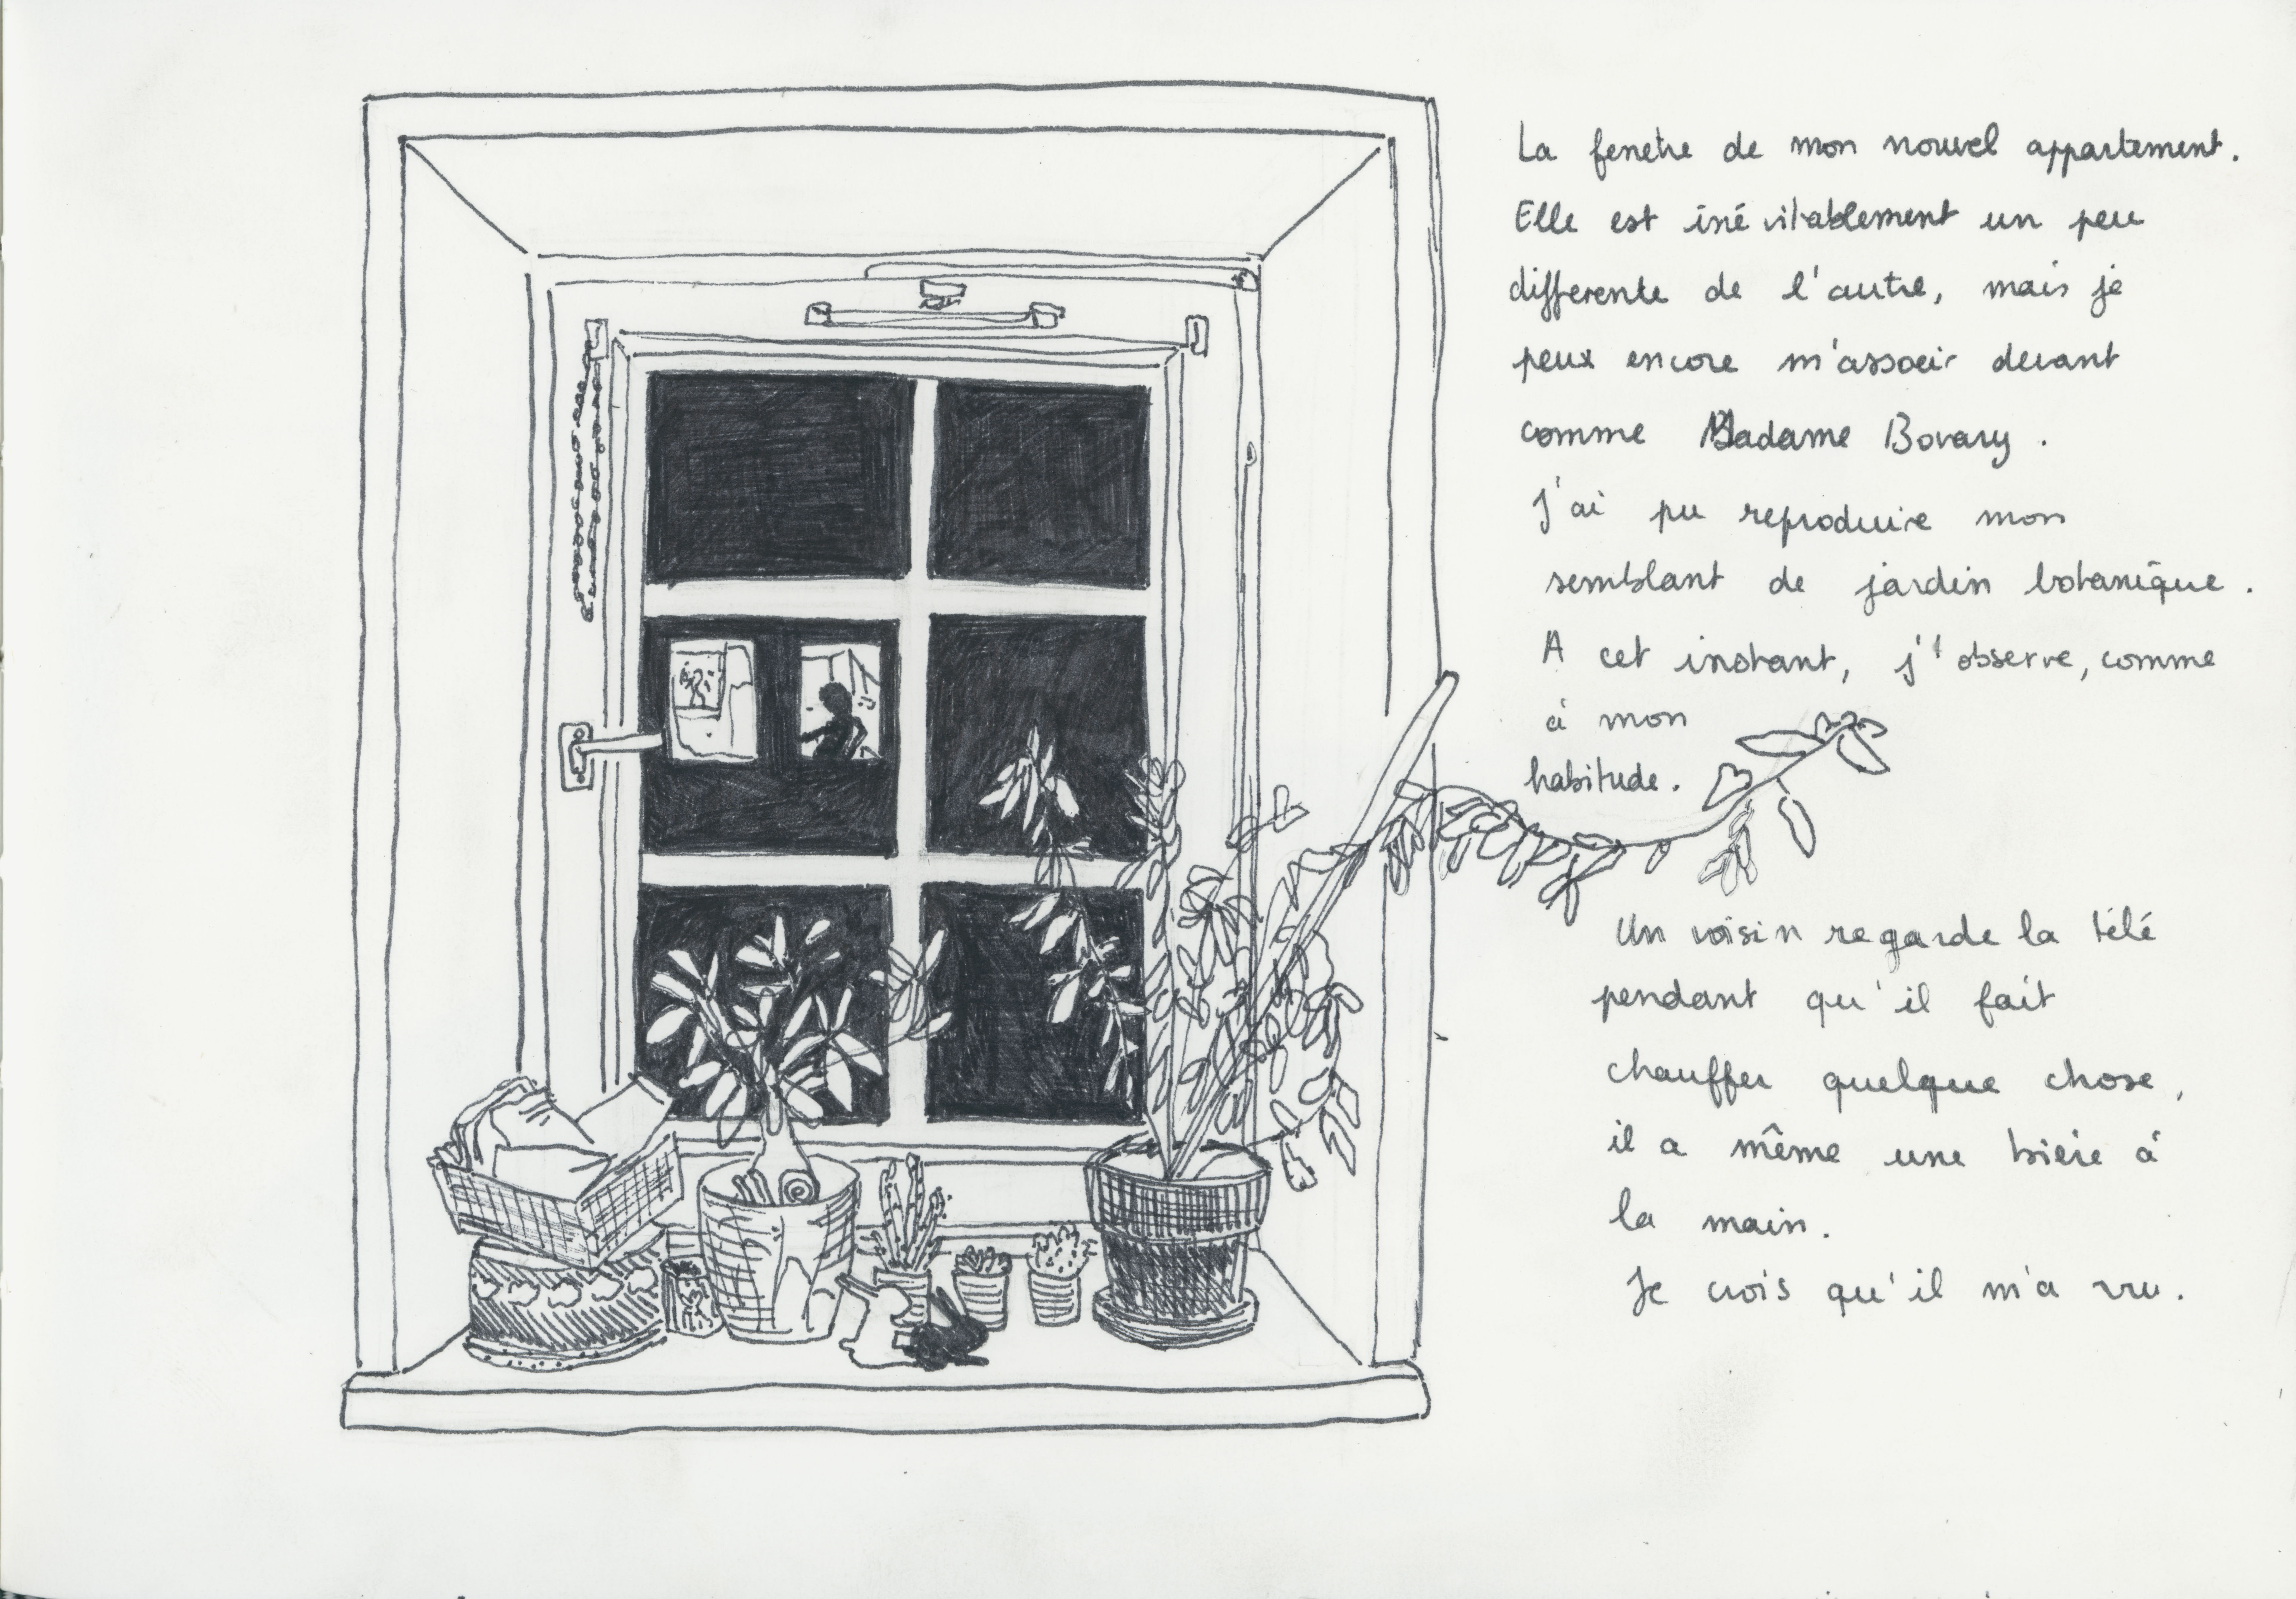 La fenetre de mon nouvel appartement.
Elle est inévitablement un peu
differente de l'autre, mais je
peux encore m'assoeir devant
comme Madame Bovary.
J'ai pu reproduire mon
semblant de jardin botanique.
A cet instant, j'observe, comme
à mon
habitude.
Un voisin regarde la télé
pendant qu'il fait
chauffer quelque chose,
il a même une bière à
la main.
Je crois qu'il m'a vu.